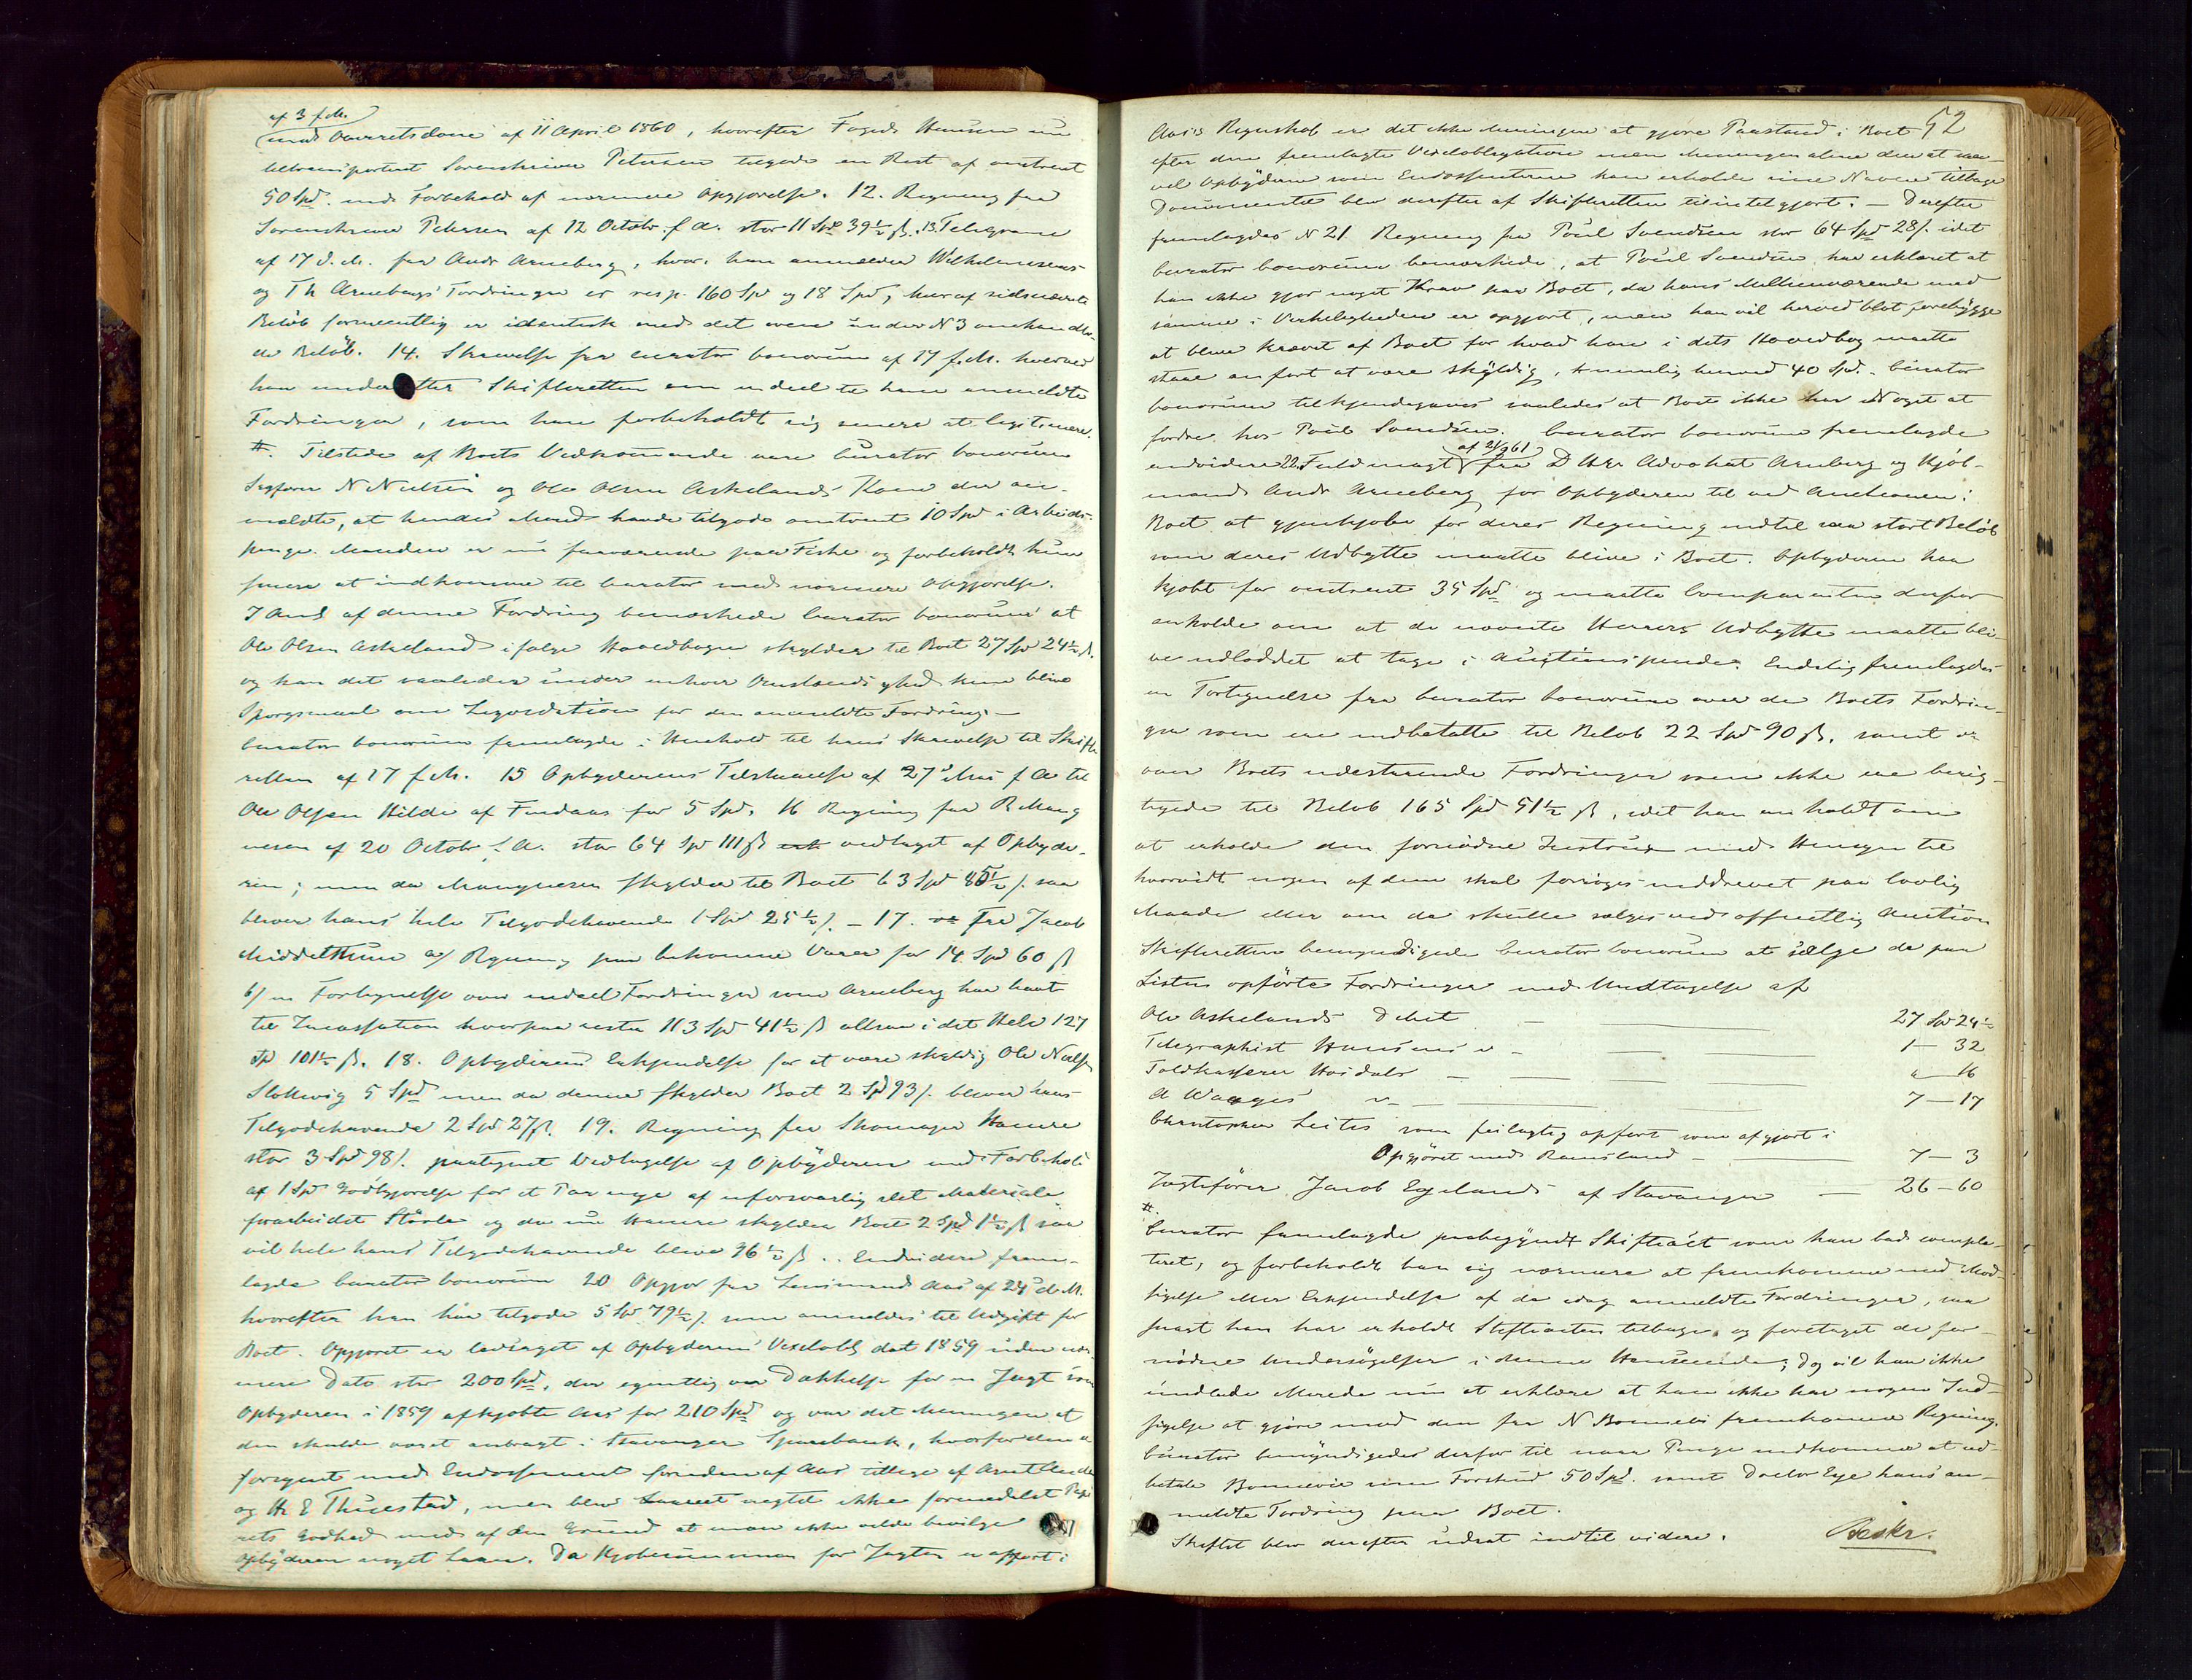 af 3 f.M.
med Overretsdom af 11 April 1860, hvorefter Foged Hansen nu
tiltransporteret Sorenskriver Petersen tilgode en Rest af omtrent
50 Spd. med Forbehold af nærmere Opgjørelse. 12. Regning fra
Sorenskriver Petersen af 12 Octobr. f. A. stor 11 Spd 39½ ß. 13. Telegram
af 17 d. M. fra Andr Arneberg, hvori han anmelder Wilhelmsens
og Th Arnebergs Fordringer er resp. 160 Spd og 18 Spd, hvoraf sidstnævnte
Beløb formeentlig er identisk med det oven under N 3 omhandle-
de Beløb. 14. Skrivelse fra curator bonorum af 17 f. M. hvorved
han underetter Skifteretten om endeel til ham anmeldte
Fordringer, som han forbeholdt sig senere at legitimere.
#. Tilstede af Boets Vedkommende vare Curator bonorum
Sagfører N Nielsen og Ole Olsen Askelands Kone der an-
meldte, at hendes Mand havde tilgode omtrent 10 Spd i Arbeids-
penge. Manden er nu fraværende paa Fiske og forbeholdt hun
senere at indkomme til Curator med nærmere Opgjørelse.
I Anl af denne Fordring bemærkede Curator bonorum at
Ole Olsen Askeland ifølge Hovedbogen skylder til Boet 27 Spd 24½ ß.
og kan det saaledes under enhver Omstændighed kun blive
Spørgsmaal om Liqvidation for den anmeldte Fordring. —
Curator bonorum fremlagde i Henhold til hans Skrivelse til Skifte-
retten af 17 f. M. 15 Opbyderens Tilstaaelse af 27 Mai f A til
Ole Olsen Hilde af Findaas for 5 Spd. 16 Regning fra B Mang
nesen af 20 Octobr f. A. stor 64 Spd 111 ß vedtaget af Opbyde-
ren; men da Mangnesen skylder til Boet 63 Spd 85½ ß. saa
bliver hans hele Tilgodehavende 1 Spd 25½ ß. — 17. Fra Jacob
Middelthun a/ Regning paa bekomne Varer for 14 Spd 60 ß
b/ en Fortegnelse over endeel Fordringer som Arneberg har havt
til Incassation hvorpaa rester 113 Spd 41½ ß altsaa i det Hele 127
Spd 101½ ß. 18. Opbyderens Erkjendelse for at være skyldig Ole Nielsen
Stokkevig 5 Spd men da denne skylder Boet 2 Spd 93 ß. bliver hans
Tilgodehavende 2 Spd 27 ß. 19. Regning fra Skomager Hamre
stor 3 Spd 98 ß. paategnet Vedtagelse af Opbyderen med Forbehold
af 1 Spd Godtgjørelse for et Par nye af uforsvarlig slet Materiale
forarbeidet Støvle og da nu Hamre skylder Boet 2 Spd 1½ ß saa
vil hele hans Tilgodehavende blive 96½ ß. Endvidere frem-
lagde Curator bonorum 20 Opgjør fra Lensmand Aas af 24 d. M.
hvorefter han har tilgode 5 Spd 79½ ß. som anmeldes til Udgift for
Boet. Opgjøret er ledsaget af Opbyderens Vexelobl dat 1859 uden nær-
mere Dato stor 200 Spd, der egentlig var Dækkelse for en Jagt som
Opbyderen i 1859 afkjøbte Aas for 210 Spd og var det Meningen at
den skulde været anbragt i Stavanger Sparebank, hvorfor den er
forsynet med Endossement foruden af Aas tillige af
og H E Thuestad, men blev nægtet ikke formedelst Papi-
rets Godhed med af den Grund at man ikke vilde bevilge
Opbyderen noget Laan. Da Kjøbesummen for Jagten er opført i
52
Aas's Regnskab er det ikke Meningen at gjøre Paastand i Boet
efter den fremlagte Vexelobligation men Meningen alene den at saa-
vel Opbyderen som Endossenterne kan erholde sine Navne tilbage
Documentet blev derefter af Skifteretten tilintetgjort. — Derefter
fremlagdes N 21 Regning fra Poul Svendsen stor 64 Spd 28 ß. idet
Curator bonorum bemærkede, at Poul Svendsen har erklæret at
han ikke gjør noget Krav paa Boet, da hans Mellemværende med
samme i Virkeligheden er opgjort, men han vil herved blot forebygge
at blive krævet af Boet for hvad han i dets Hovedbog maatte
staae anført at være skyldig, nemlig herved 40 Spd. Curator
bonorum tilkjendegaves saaledes at Boet ikke har Noget at
fordre hos Poul Svendsen. Curator bonorum fremlagde
af 21/9 61
endvidere 22. Fuldmagt fra D Hrr Advokat Arneberg og Kjøb-
mand Andr Arneberg for Opbyderen til ved Auctionen i
Boet at gjenkjøbe for deres Regning indtil saa stort Beløb
som deres Udbytte maatte blive i Boet. Opbyderen har
kjøbt for omtrent 35 Spd og maatte Comparenten derfor
anholde om at de nævnte Herrers Udbytte maatte bli-
ve udloddet at tage i Auctionspenge. Endelig fremlagdes
en Fortegnelse fra Curator bonorum over de Boets Fordrin-
ger som ere indbetalte til Beløb 22 Spd 90 ß. samt
over Boets udestaaende Fordringer som ikke ere berig-
tigede til Beløb 165 Spd 51½ ß, idet han anholdt om
at erholde den fornødne Instrux med Hensyn til
hvorvidt nogen af dem skal forsøges inddrevet paa lovlig
Maade eller om de skulle sælges ved offentlig Auction
Skifteretten bemyndigede Curator bonorum at sælge de paa
Listen opførte Fordringer med Undtagelse af
Ole Askelands Debet — — — 27 Spd 24½
Telegraphist Hansens — — — 1 — 32
Toldkasserer Hosdals — — — " — 16
A Waages — — — 7 — 17
Christopher Leites som feilagtig opført som afgjort i
Opgjøret med Ramsland — — 7 — 3
Jagtefører Jacob Egelands af Stavanger — 26 — 60
#.
Curator fremlagde paabegyndt Skifteact som han bad comple-
teret, og forbeholdt han sig nærmere at fremkomme med Mod-
sigelse eller Erkjendelse af de idag anmeldte Fordringer, saa
snart han har erholdt Skifteacten tilbage og foretaget de for-
nødne Undersøgelser i denne Henseende; dog vil han ikke
undlade allerede nu at erklære at han ikke har nogen Ind-
sigelse at gjøre mod den fra N Bonnevi fremkomne Regning.
Curator bemyndigedes derfor til naar Penge indkomme at ud-
betale Bonnevie som Forskud 50 Spd. samt Doctor Ege hans an-
meldte Fordring paa Boet.
Skiftet blev derefter udsat indtil videre.
Beskr.